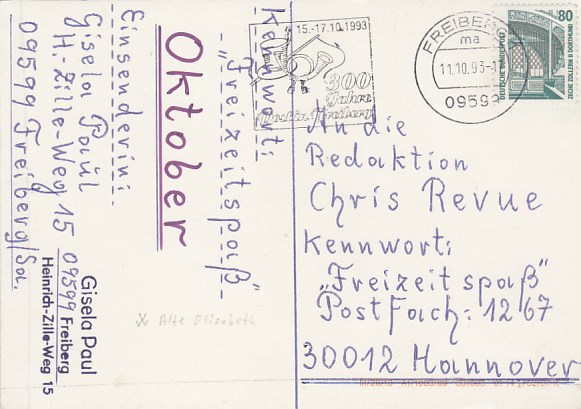 Kennwort:
"Freizeitspaß"
Oktober
Einsenderin:
Gisela Paul
H.-Zille-Weg 15
09599 Freiberg/Sa.
Gisela Paul
09599 Freiberg
Heinrich-Zille-Weg 15
Alte Elisabeth
15.-17.10.1993
300
Jahre
FREIBERG
ma
11.10.93-
0959
80
DEUTSCHE BUNDESPOST
ZECHE ZOLLERN II DORTMUND
An die
Redaktion
Chris Revue
Kennwort:
"Freizeitspaß"
Postfach: 1267
30012 Hannover